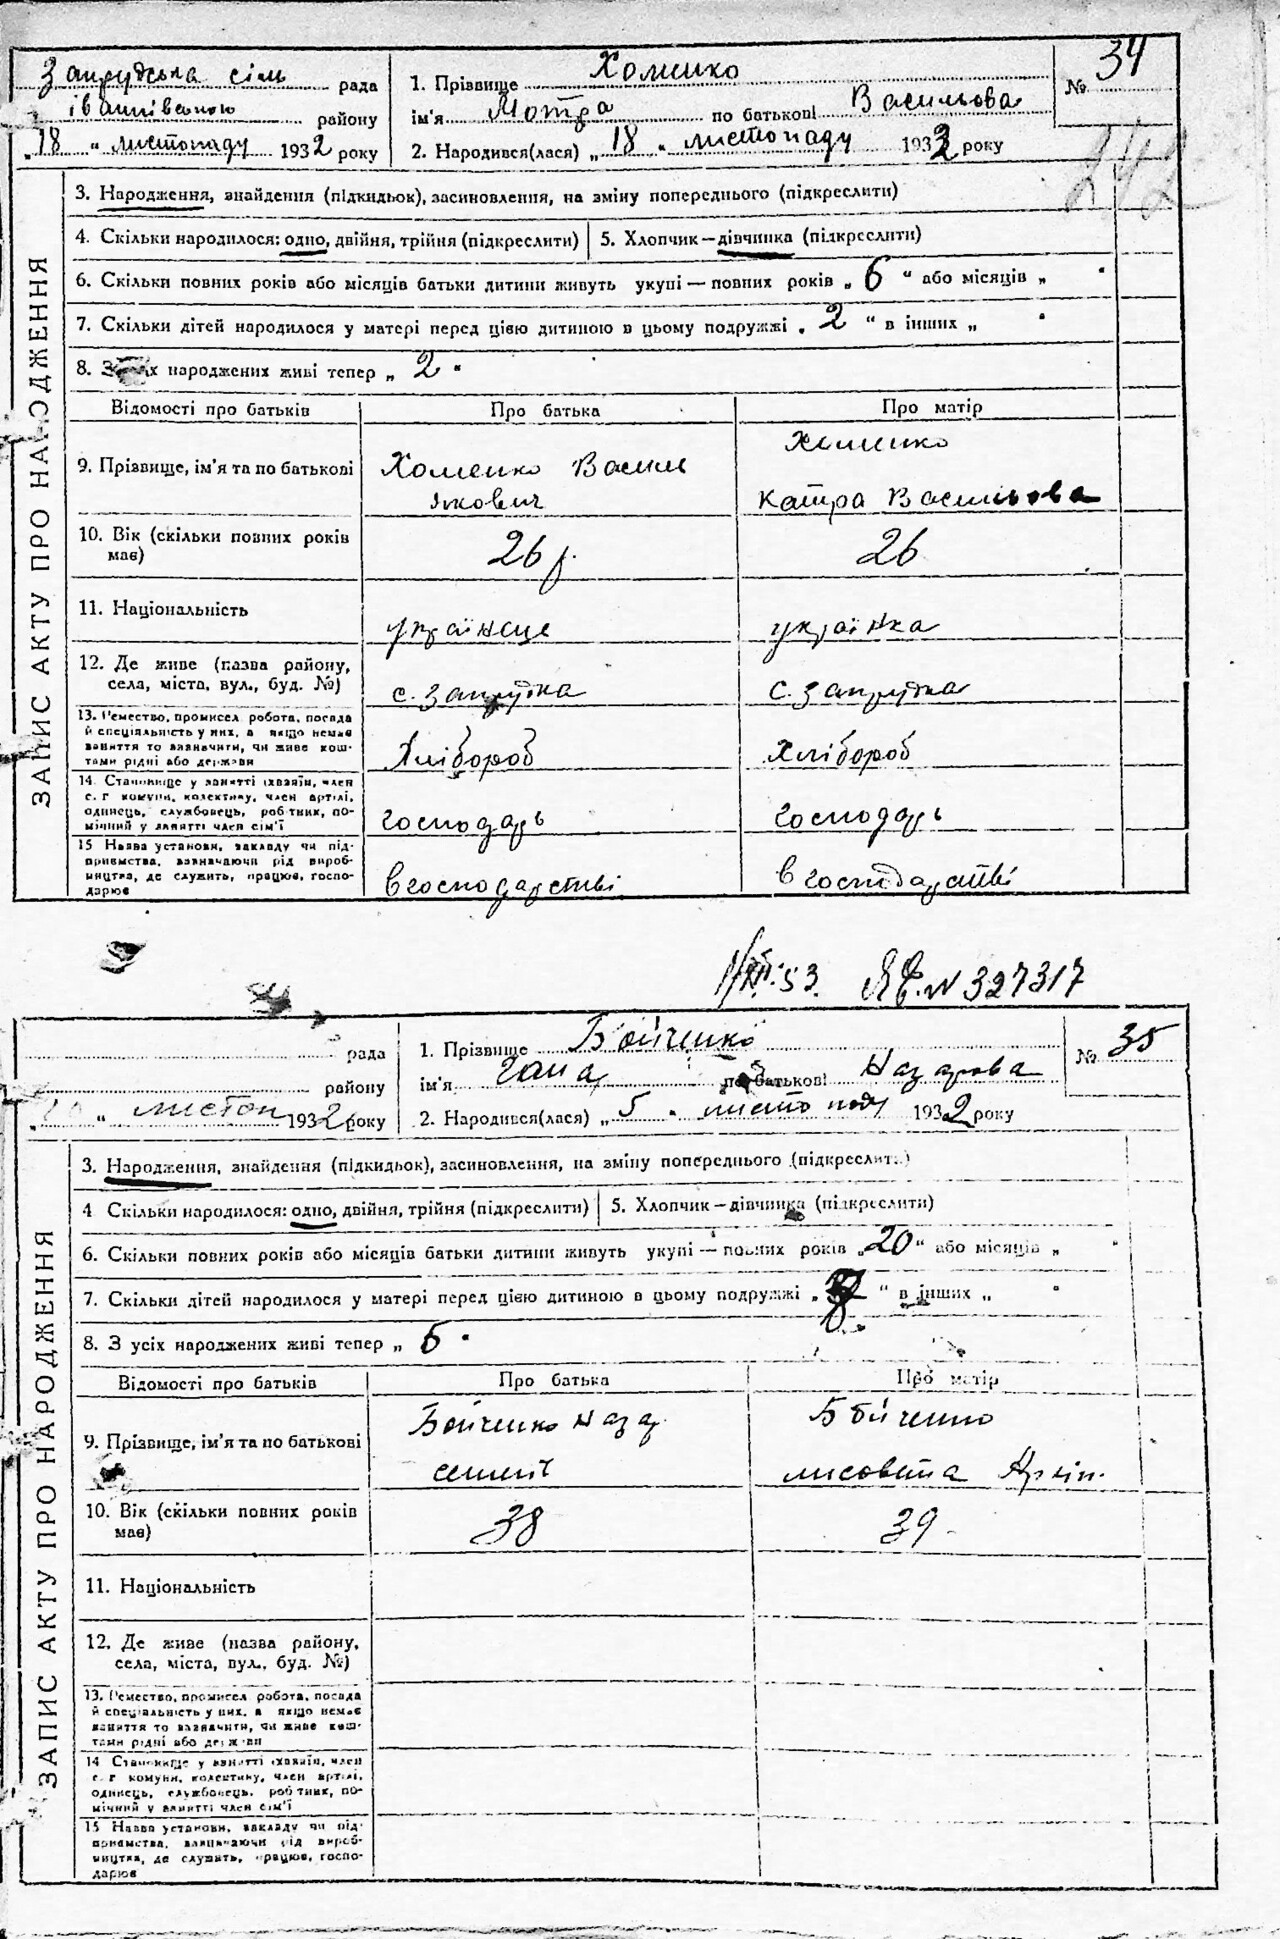 Запрудська сіль рада
івашківською району
„18 “ листопаду 1932 року
1. Прізвище Хоменко
ім'я Мотра по батькові Васильова
2. Народився(лася) „18 “ листопаду 1932 року
№ 34
242
ЗАПИС АКТУ ПРО НАРОДЖЕННЯ
3. Народження, знайдення (підкидьок), засиновлення, на зміну попереднього (підкреслити)
4. Скільки народилося: одно, двійня, трійня (підкреслити) 5. Хлопчик — дівчинка (підкреслити)
6. Скільки повних років або місяців батьки дитини живуть укупі — повних років „ 6 “ або місяців „ “
7. Скільки дітей народилося у матері перед цією дитиною в цьому подружжі „ 2 “ в інших „ “
8. З х народжених живі тепер „ 2 “
Відомості про батьків Про батька Про матір
9. Прізвище, ім'я та по батькові Хоменко Васил Якович Хоменко Катра Васильова
10. Вік (скільки повних років має) 26 р. 26
11. Національність українец українка
12. Де живе (назва району, села, міста, вул., буд. №) с. Запрудка с. Запрудка
13. Ремество, промисел робота, посада й спеціальність у них, а якщо немає заняття то зазначити, чи живе коштами рідні або держави Хлібороб Хлібороб
14. Становище у занятті (хазяїн, член с. г комуни, колективу, член артілі, одинець, службовець, робтник, помічний у занятті член сім'ї господарь господарь
15 Назва установи, закладу чи підприємства, зазначаючи рід виробництва, де служить, працює, господарює в господарстві в господарстві
53. ЯС. N 327317
рада
району
“ листоп 1932 року
1. Прізвище Бойченко
ім'я Гана по батькові Назарова
2. Народився(лася) „ 5 “ листопаду 1932 року
№ 35
ЗАПИС АКТУ ПРО НАРОДЖЕННЯ
3. Народження, знайдення (підкидьок), засиновлення, на зміну попереднього (підкреслити)
4 Скільки народилося: одно, двійня, трійня (підкреслити) 5. Хлопчик — дівчинка (підкреслити)
6. Скільки повних років або місяців батьки дитини живуть укупі — повних років „ 20 “ або місяців „ “
7. Скільки дітей народилося у матері перед цією дитиною в цьому подружжі „ “ в інших „ “
8. З усіх народжених живі тепер „ 5 “
Відомості про батьків Про батька Про матір
9. Прізвище, ім'я та по батькові Бойченко Назар Бойченко лисовета Архіп.
10. Вік (скільки повних років має) 38 39
11. Національність
12. Де живе (назва району, села, міста, вул., буд. №)
13. Ремество, промисел робота, посада й спеціальність у них, а якщо немає заняття то зазначити, чи живе коштами рідні або держави
14 Становище у занятті (хазяїн, член с. г комуни, колективу, член артілі, одинець, службовець, робтник, помічний у занятті член сім'ї
15 Назва установи, закладу чи підприємства, зазначаючи рід виробництва, де служить, працює, господарює